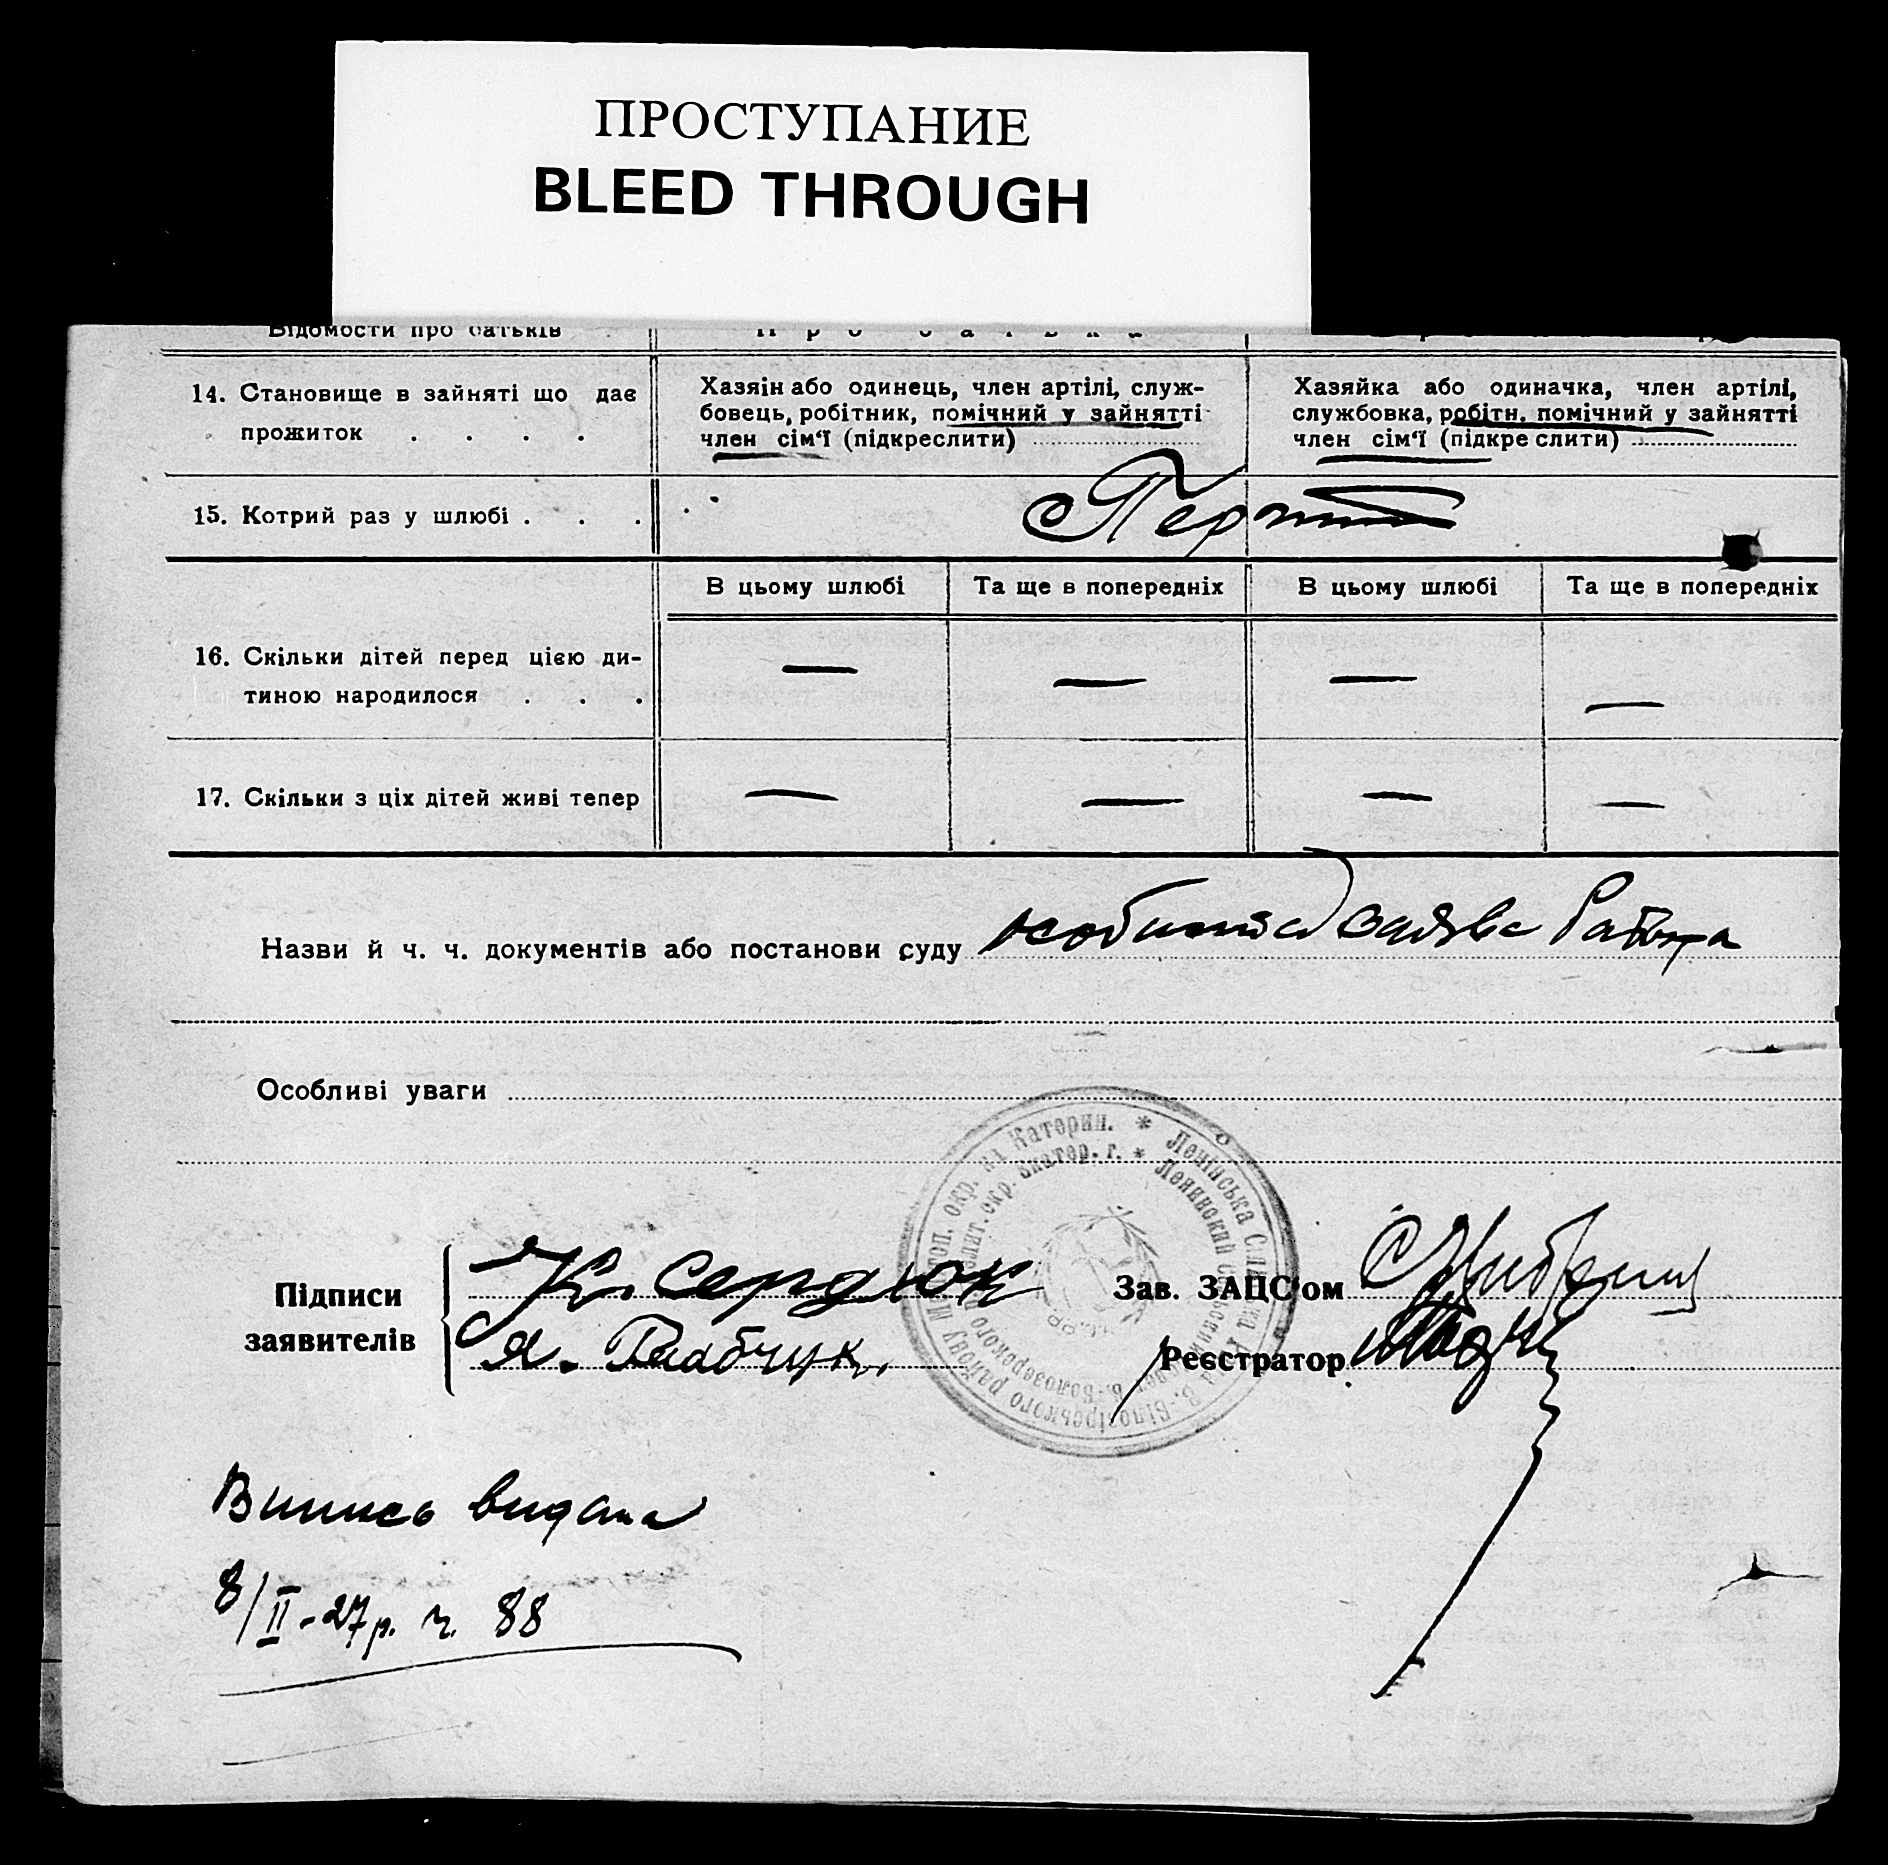 ПРОСТУПАНИЕ
BLEED THROUGH
Відомости про батьків
14. Становище в зайняті що дає
прожиток . . . .
Хазяін або одинець, член артілі, служ-
бовець, робітник, помічний у зайнятті
член сім'ї (підкреслити)
Хазяйка або одиначка, член артілі,
службовка, робітн. помічний у зайнятті
член сім'ї (підкреслити)
15. Котрий раз у шлюбі . . .
В цьому шлюбі Та ще в попередніх В цьому шлюбі Та ще в попередніх
16. Скільки дітей перед цією ди-
тиною народилося . . .
— — — —
17. Скільки з ціх дітей живі тепер — — — —
Назви й ч. ч. документів або постанови суду особиста заява
Особливі уваги
Підписи
заявителів
К. Сердюк
Я. Рябчук
Зав. ЗАЦС'ом
Реєстратор
Катерин. * Ленінська
Екатер. г. * Ленинский
Випись видана
8/II-27р. ч. 88